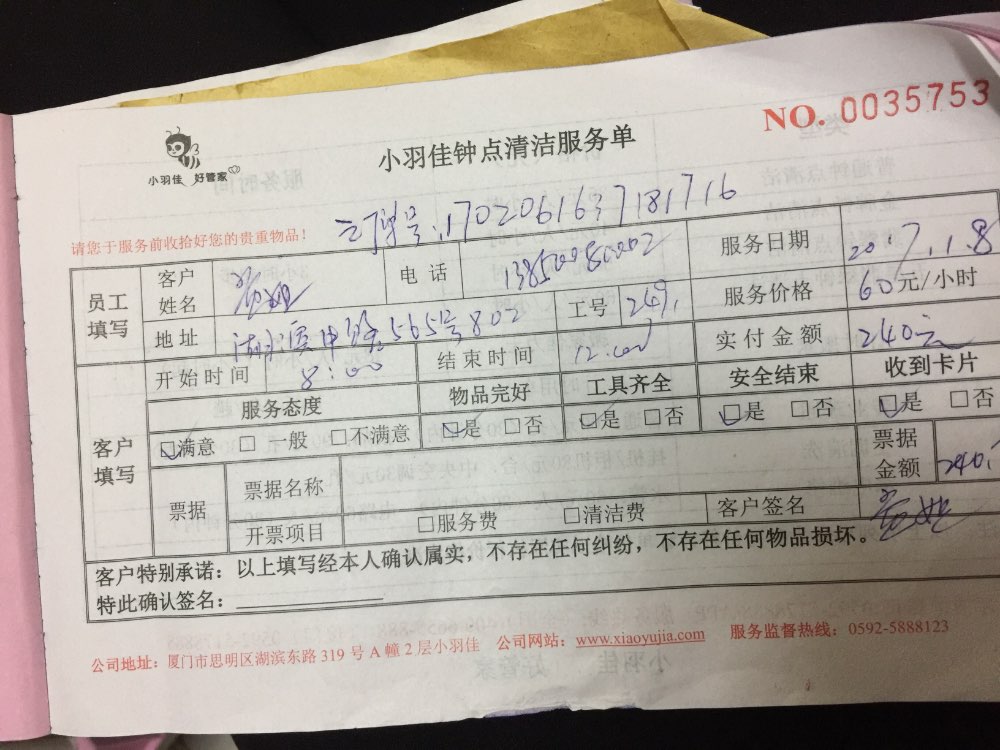 NO. 0035753
小羽佳 好管家
小羽佳钟点清洁服务单
请您于服务前收拾好您的贵重物品!
订单号:1702061637181716
员工填写 客户姓名 电话 13850080002 服务日期 2017.1.8
地址 湖滨中路565号802 工号 249. 服务价格 60元/小时
开始时间 8:00 结束时间 12:00 实付金额 240元
客户填写 服务态度 物品完好 工具齐全 安全结束 收到卡片
☑满意 □一般 □不满意 ☑是 □否 ☑是 □否 ☑是 □否 ☑是 □否
票据 票据名称 票据金额 240.
开票项目 □服务费 □清洁费 客户签名
客户特别承诺:以上填写经本人确认属实,不存在任何纠纷,不存在任何物品损坏。
特此确认签名:
公司地址:厦门市思明区湖滨东路319号A幢2层小羽佳 公司网站:www.xiaoyujia.com 服务监督热线:0592-5888123